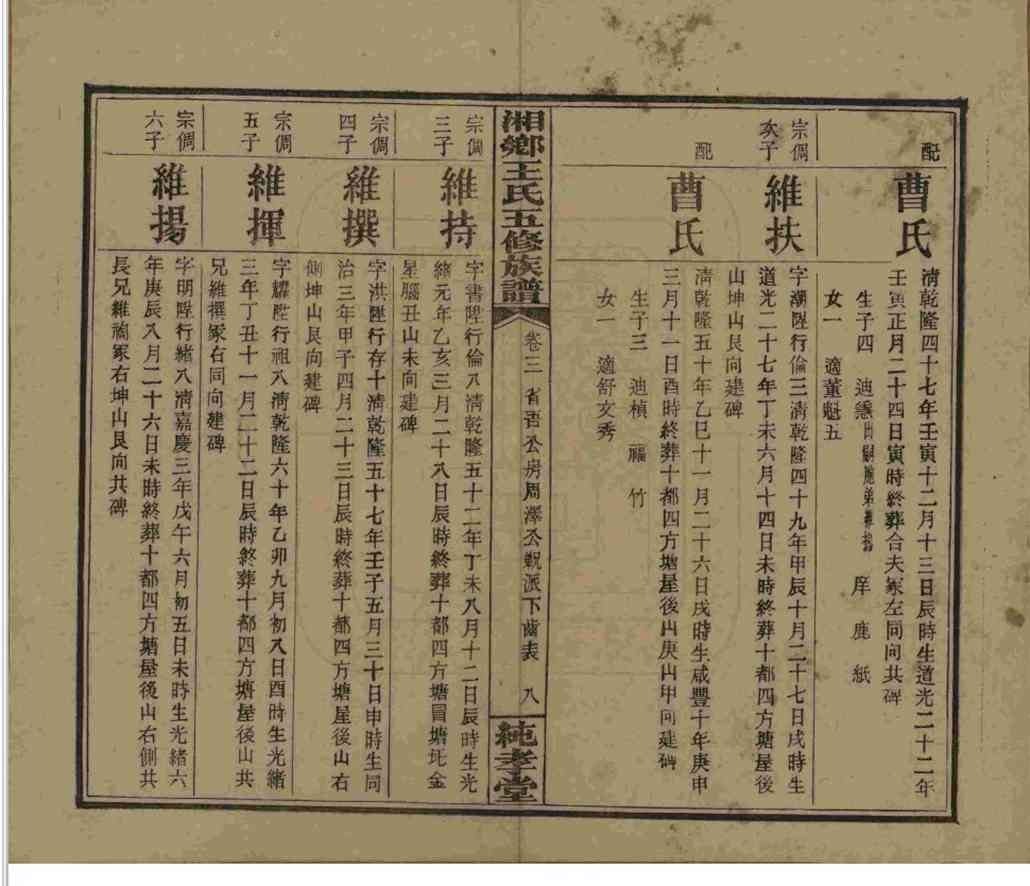 配
曹氏
清乾隆四十七年壬寅十二月十三日辰時生道光二十二年
壬寅正月二十四日寅時終葬合夫冢左同向共碑
生子四 迪 出嗣胞弟維揚 庠 鹿 紙
女一 適董魁五
宗倜
次子
維扶
字潮陞行倫三清乾隆四十九年甲辰十月二十七日戌時生
道光二十七年丁未六月十四日未時終葬十都四方塘屋後
山坤山艮向建碑
配
曹氏
清乾隆五十年乙巳十一月二十六日戌時生咸豐十年庚申
三月十一日酉時終葬十都四方塘屋後山庚山甲向建碑
生子三 迪楨 竹
女一 適舒文秀
湘鄉王氏五修族譜
卷三 省吾公房周澤公 派下齒表 八
純孝堂
宗倜
三子
維持
字書陞行倫八清乾隆五十二年丁未八月十二日辰時生光
緒元年乙亥三月二十八日辰時終葬十都四方塘冒塘坵金
星腦丑山未向建碑
宗倜
四子
維撰
字洪陞行存十清乾隆五十七年壬子五月三十日申時生同
治三年甲子四月二十三日辰時終葬十都四方塘屋後山右
側坤山艮向建碑
宗倜
五子
維揮
字耀陞行祖八清乾隆六十年乙卯九月初八日酉時生光緒
三年丁丑十一月二十二日辰時終葬十都四方塘屋後山共
兄維撰冢右同向建碑
宗倜
六子
維揚
字明陞行緒八清嘉慶三年戊午六月初五日未時生光緒六
年庚辰八月二十六日未時終葬十都四方塘屋後山右側共
長兄維 冢右坤山艮向共碑